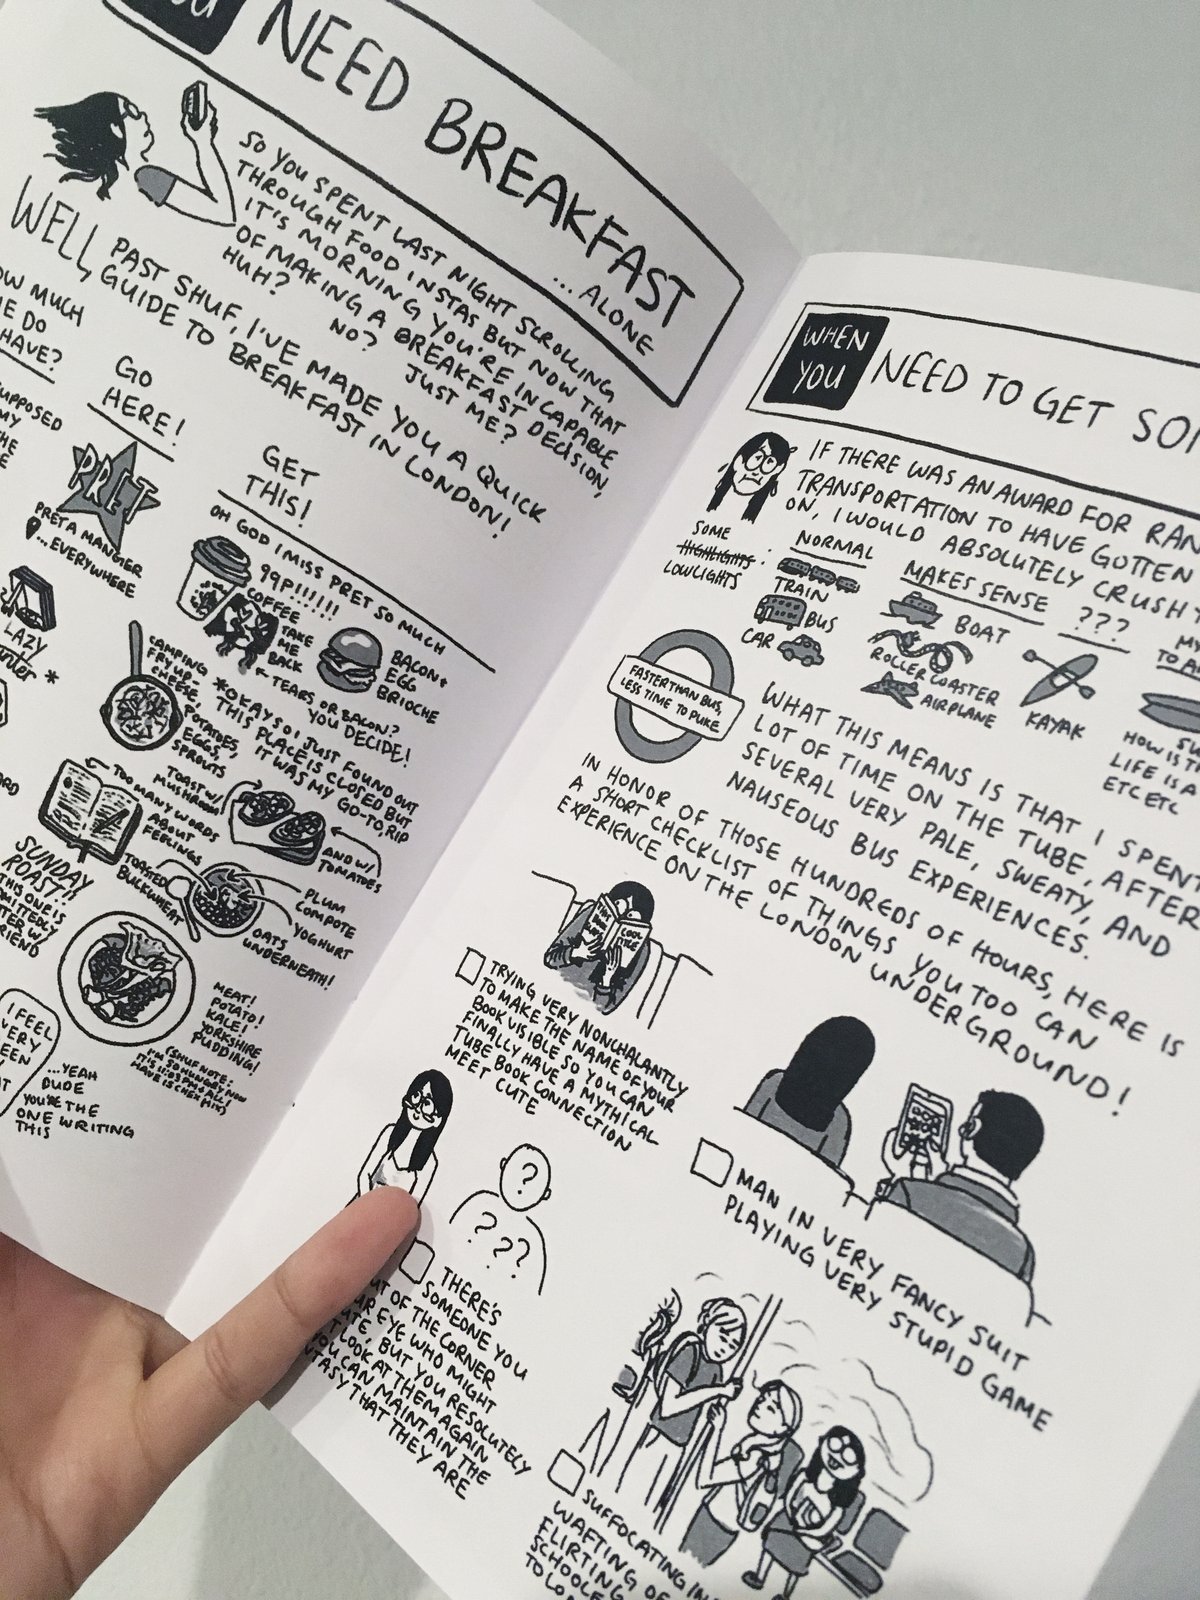 YOU
NEED BREAKFAST
...ALONE
SO YOU SPENT LAST NIGHT SCROLLING
THROUGH FOOD INSTAS BUT NOW THAT
IT'S MORNING YOU'RE INCAPABLE
OF MAKING A BREAKFAST DECISION,
HUH? NO? JUST ME?
WELL PAST SHUF, I'VE MADE YOU A QUICK
GUIDE TO BREAKFAST IN LONDON!
MUCH
DO
HAVE?
GO
HERE!
GET
THIS!
PRET
PRET A MANGER
...EVERYWHERE
OH GOD I MISS PRET SO MUCH
99P!!!!!!
COFFEE
TAKE
ME
BACK
BACON+
EGG
BRIOCHE
← TEARS OR BACON?
YOU DECIDE!
LAZY
*
CAMPING
FRY UP:
CHEESE,
POTATOES,
EGGS,
SPROUTS
*OKAY SO I JUST FOUND OUT
THIS PLACE IS CLOSED BUT
IT WAS MY GO-TO, RIP
TOO MANY WORDS
ABOUT
FEELINGS
TOAST W/
MUSHROOM
AND W/
TOMATOES
TOASTED
BUCKWHEAT
PLUM
COMPOTE
YOGHURT
OATS
UNDERNEATH!
SUNDAY
ROAST!!
THIS ONE IS
MEAT!
POTATO!
KALE!
YORKSHIRE
PUDDING!
(SHUF NOTE:
I'M SO HUNGRY NOW
IT'S 11:55 PM + ALL I
HAVE IS CHEX MIX)
I FEEL
VERY
...YEAH
DUDE
YOU'RE THE
ONE WRITING
THIS
WHEN
YOU
NEED TO GET
IF THERE WAS AN AWARD FOR
TRANSPORTATION TO HAVE GOTTEN
ON, I WOULD ABSOLUTELY CRUSH
SOME
HIGHLIGHTS:
LOWLIGHTS
NORMAL
TRAIN
BUS
CAR
MAKES SENSE
BOAT
ROLLER COASTER
AIRPLANE
???
KAYAK
MY
HOW IS
LIFE IS A
ETC ETC
FASTER THAN BUS,
LESS TIME TO PUKE
WHAT THIS MEANS IS THAT I SPENT
LOT OF TIME ON THE TUBE, AFTER
SEVERAL VERY PALE, SWEATY, AND
NAUSEOUS BUS EXPERIENCES.
IN HONOR OF THOSE HUNDREDS OF HOURS, HERE IS
A SHORT CHECKLIST OF THINGS YOU TOO CAN
EXPERIENCE ON THE LONDON UNDERGROUND!
COOL
TRYING VERY NONCHALANTLY
TO MAKE THE NAME OF YOUR
BOOK VISIBLE SO YOU CAN
FINALLY HAVE A MYTHICAL
TUBE BOOK CONNECTION
MEET CUTE
MAN IN VERY FANCY SUIT
PLAYING VERY STUPID GAME
?
? ? ?
THERE'S
SOMEONE YOU
OUT OF THE CORNER
EYE WHO MIGHT
BUT YOU RESOLUTELY
LOOK AT THEM AGAIN
YOU CAN MAINTAIN THE
THAT THEY ARE
SUFFOCATING IN
WAFTING
FLIRTING OF